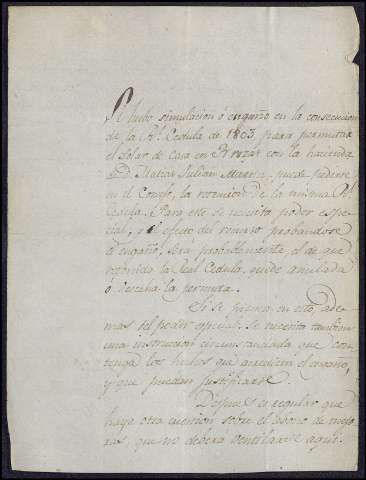 Si hubo simulacion ó engaño en la consecucion
de la Rl. Cedula de 1803, para permutar
el Solar de Casa en con la hacienda
de D. Matias Julian puede pedirse
en el Consejo, la retencion de la misma Rl.
Cedula. Para esto se necesita poder espe-
cial, y el efecto del remedio probandose
el engaño, será probablemente el de que
retenida la Real Cedula, quede anulada
ó desecha la permuta.
Si se piensa en esto, ade-
mas del poder especial, se necesita tambien
una instruccion circunstanciada que con-
tenga los hechos que acrediten el engaño,
y que puedan justificarse.
Despues es regular que
haya otra cuestion sobre el abono de mejo-
ras, que no debera ventilarse aqui.